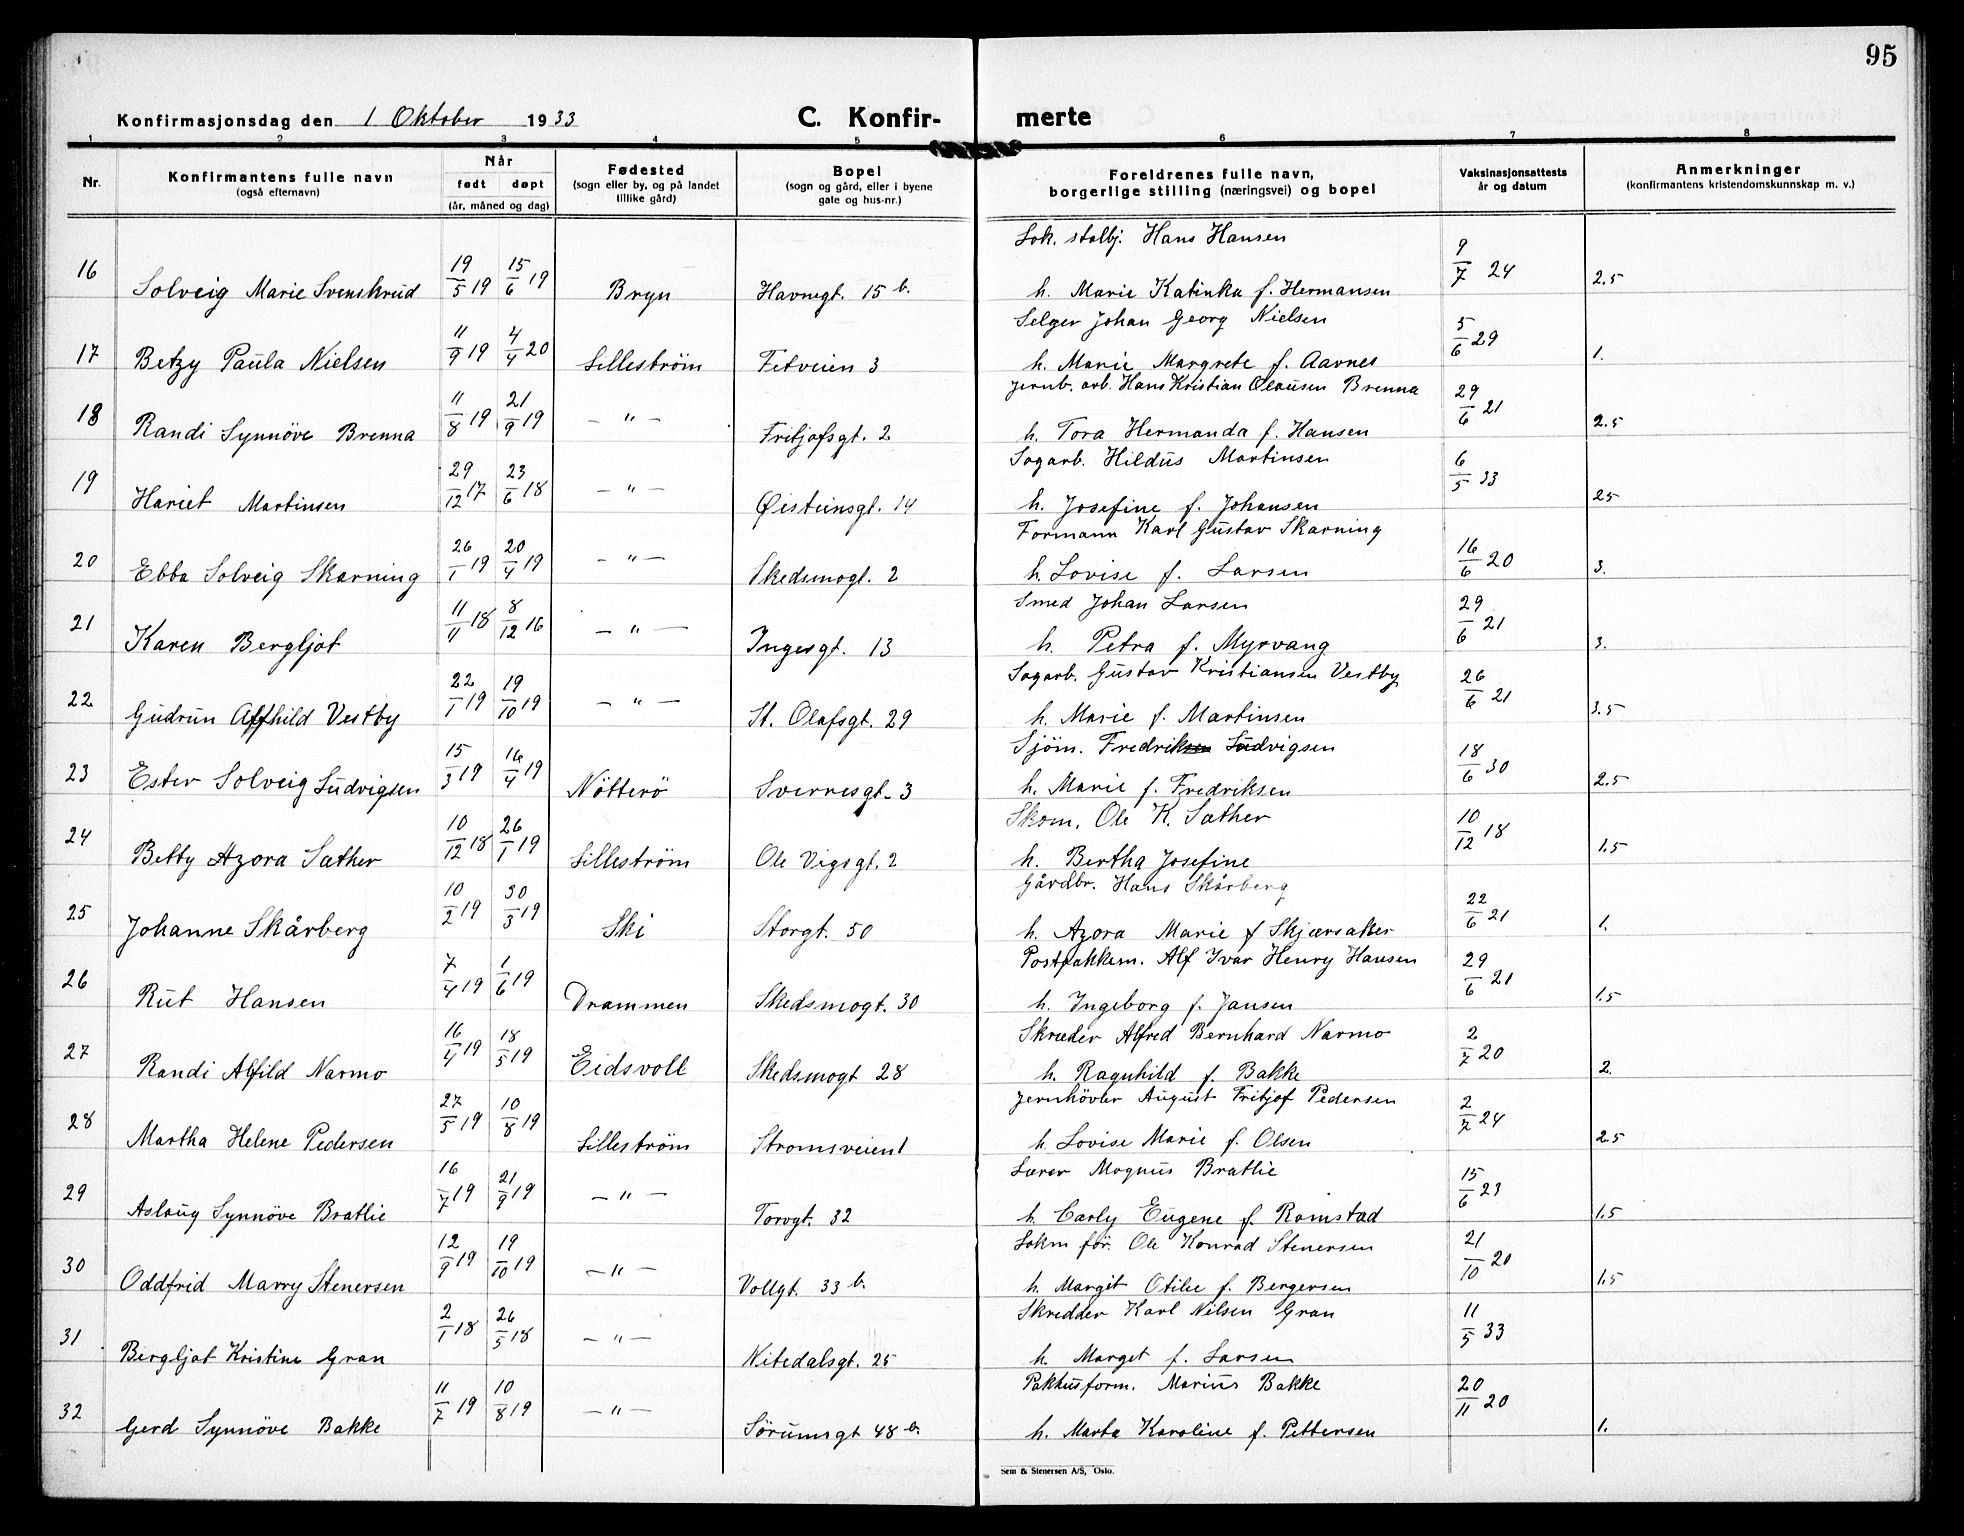 95
Konfirmasjonsdag den 1 Oktober 1933 C. Konfir- merte
1 2 3 4 5 6 7 8
Nr. Konfirmantens fulle navn (også efternavn) Når født døpt (år, måned og dag) Fødested (sogn eller by, og på landet tillike gård) Bopel (sogn og gård, eller i byene gate og hus-nr.) Foreldrenes fulle navn, borgerlige stilling (næringsvei) og bopel Vaksinasjonsattests år og datum Anmerkninger (konfirmantens kristendomskunnskap m. v.)
Lok. stalbj. Hans Hansen
16 Solveig Marie Svenskrud 19/5 19 15/6 19 Bryn Havnegt. 15 b. h. Marie Katinka f. Hermansen 9/7 24 2.5
Selger Johan Georg Nielsen
17 Betzy Paula Nielsen 11/9 19 4/4 20 Lilleström Fetveien 3 h. Marie Margrete f. Aarnes 5/6 29 1.
Jernb. arb. Hans Kristian Olausen Brenna
18 Randi Synnöve Brenna 11/8 19 21/9 19 — " — Fritjofsgt. 2 h. Tora Hermanda f. Hansen 29/6 21 2.5
Sagarb. Hildus Martinsen
19 Hariet Martinsen 29/12 17 23/6 18 — " — Øisteinsgt. 14 h. Josefine f. Johansen 6/5 33 25
Formann Karl Gustav Skarning
20 Ebba Solveig Skarning 26/1 19 20/4 19 — " — Skedsmogt. 2 h. Lovise f. Larsen 16/6 20 3.
Smed Johan Larsen
21 Karen Bergljot 11/11 18 8/12 16 — " — Ingesgt. 13 h. Petra f. Myrvang 29/6 21 3.
Sagarb. Gustav Kristiansen Vestby
22 Gudrun Affhild Vestby 22/1 19 19/10 19 — " — St. Olafsgt. 29 h. Marie f. Martinsen 26/6 21 3.5
Sjöm. Fredriksen Ludvigsen
23 Ester Solveig Ludvigsen 15/3 19 16/4 19 Nötterö Sverresgt. 3 h. Marie f. Fredriksen 18/6 30 2.5
Skom. Ole K. Sather
24 Betty Azora Sather 10/12 18 26/1 19 Lilleström Ole Vigsgt. 2 h. Bertha Josefine 10/12 18 1.5
Gårdbr. Hans Skårberg
25 Johanne Skårberg 10/2 19 30/3 19 Ski Storgt. 50 h. Azora Marie f Skjærsaker 22/6 21 1.
Postpakkem. Alf Ivar Henry Hansen
26 Rut Hansen 7/4 19 1/6 19 Drammen Skedsmogt. 30 h. Ingeborg f. Jansen 29/6 21 1.5
Skræder Alfred Bernhard Narmo
27 Randi Alfild Narmo 16/4 19 18/5 19 Eidsvoll Skedsmogt 28 h. Ragnhild f. Bakke 2/7 20 2.
Jernhövler August Fritjof Pedersen
28 Martha Helene Pedersen 27/5 19 10/8 19 Lilleström Stromsveien 1 h. Lovise Marie f. Olsen 2/7 24 2.5
Lærer Magnus Bratlie
29 Aslaug Synnöve Bratlie 16/7 19 21/9 19 — " — Torvgt. 32 h. Carly Eugene f. Romstad 15/6 23 1.5
Lokm för. Ole Konrad Stenersen
30 Oddfrid Marry Stenersen 12/9 19 19/10 19 — " — Vollgt. 33 b. h. Margit Otilie f. Bergersen 21/10 20 1.5
Skredder Karl Nilsen Gran
31 Bergljot Kristine Gran 2/1 18 26/5 18 — " — Nitedalsgt. 25 h. Marget f. Larsen 11/5 33
Pakhusform. Marius Bakke
32 Gerd Synnöve Bakke 11/7 19 10/8 19 — " — Sörumsgt 48 b. h. Marta Karoline f. Pettersen 20/11 20 1.
Sem & Stenersen A/S, Oslo.